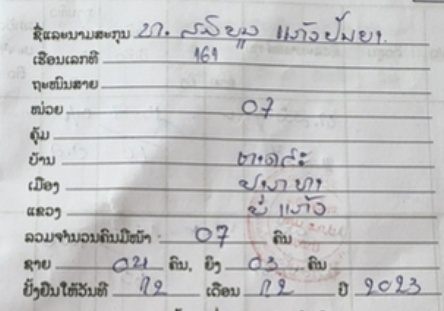 ຊື່ແລະນາມສະກຸນ ທ. ສົມບູນ ແກ້ວປັນຍາ
ເຮືອນເລກທີ 161
ຖະໜົນສາຍ
ໜ່ວຍ 07
ຄຸ້ມ
ບ້ານ
ເມືອງ
ແຂວງ ບໍ່ແກ້ວ
ລວມຈຳນວນຄົນມີໜ້າ 07 ຄົນ
ຊາຍ 04 ຄົນ, ຍິງ 03 ຄົນ
ຢັ້ງຢືນໃຫ້ວັນທີ 12 ເດືອນ 12 ປີ 2023